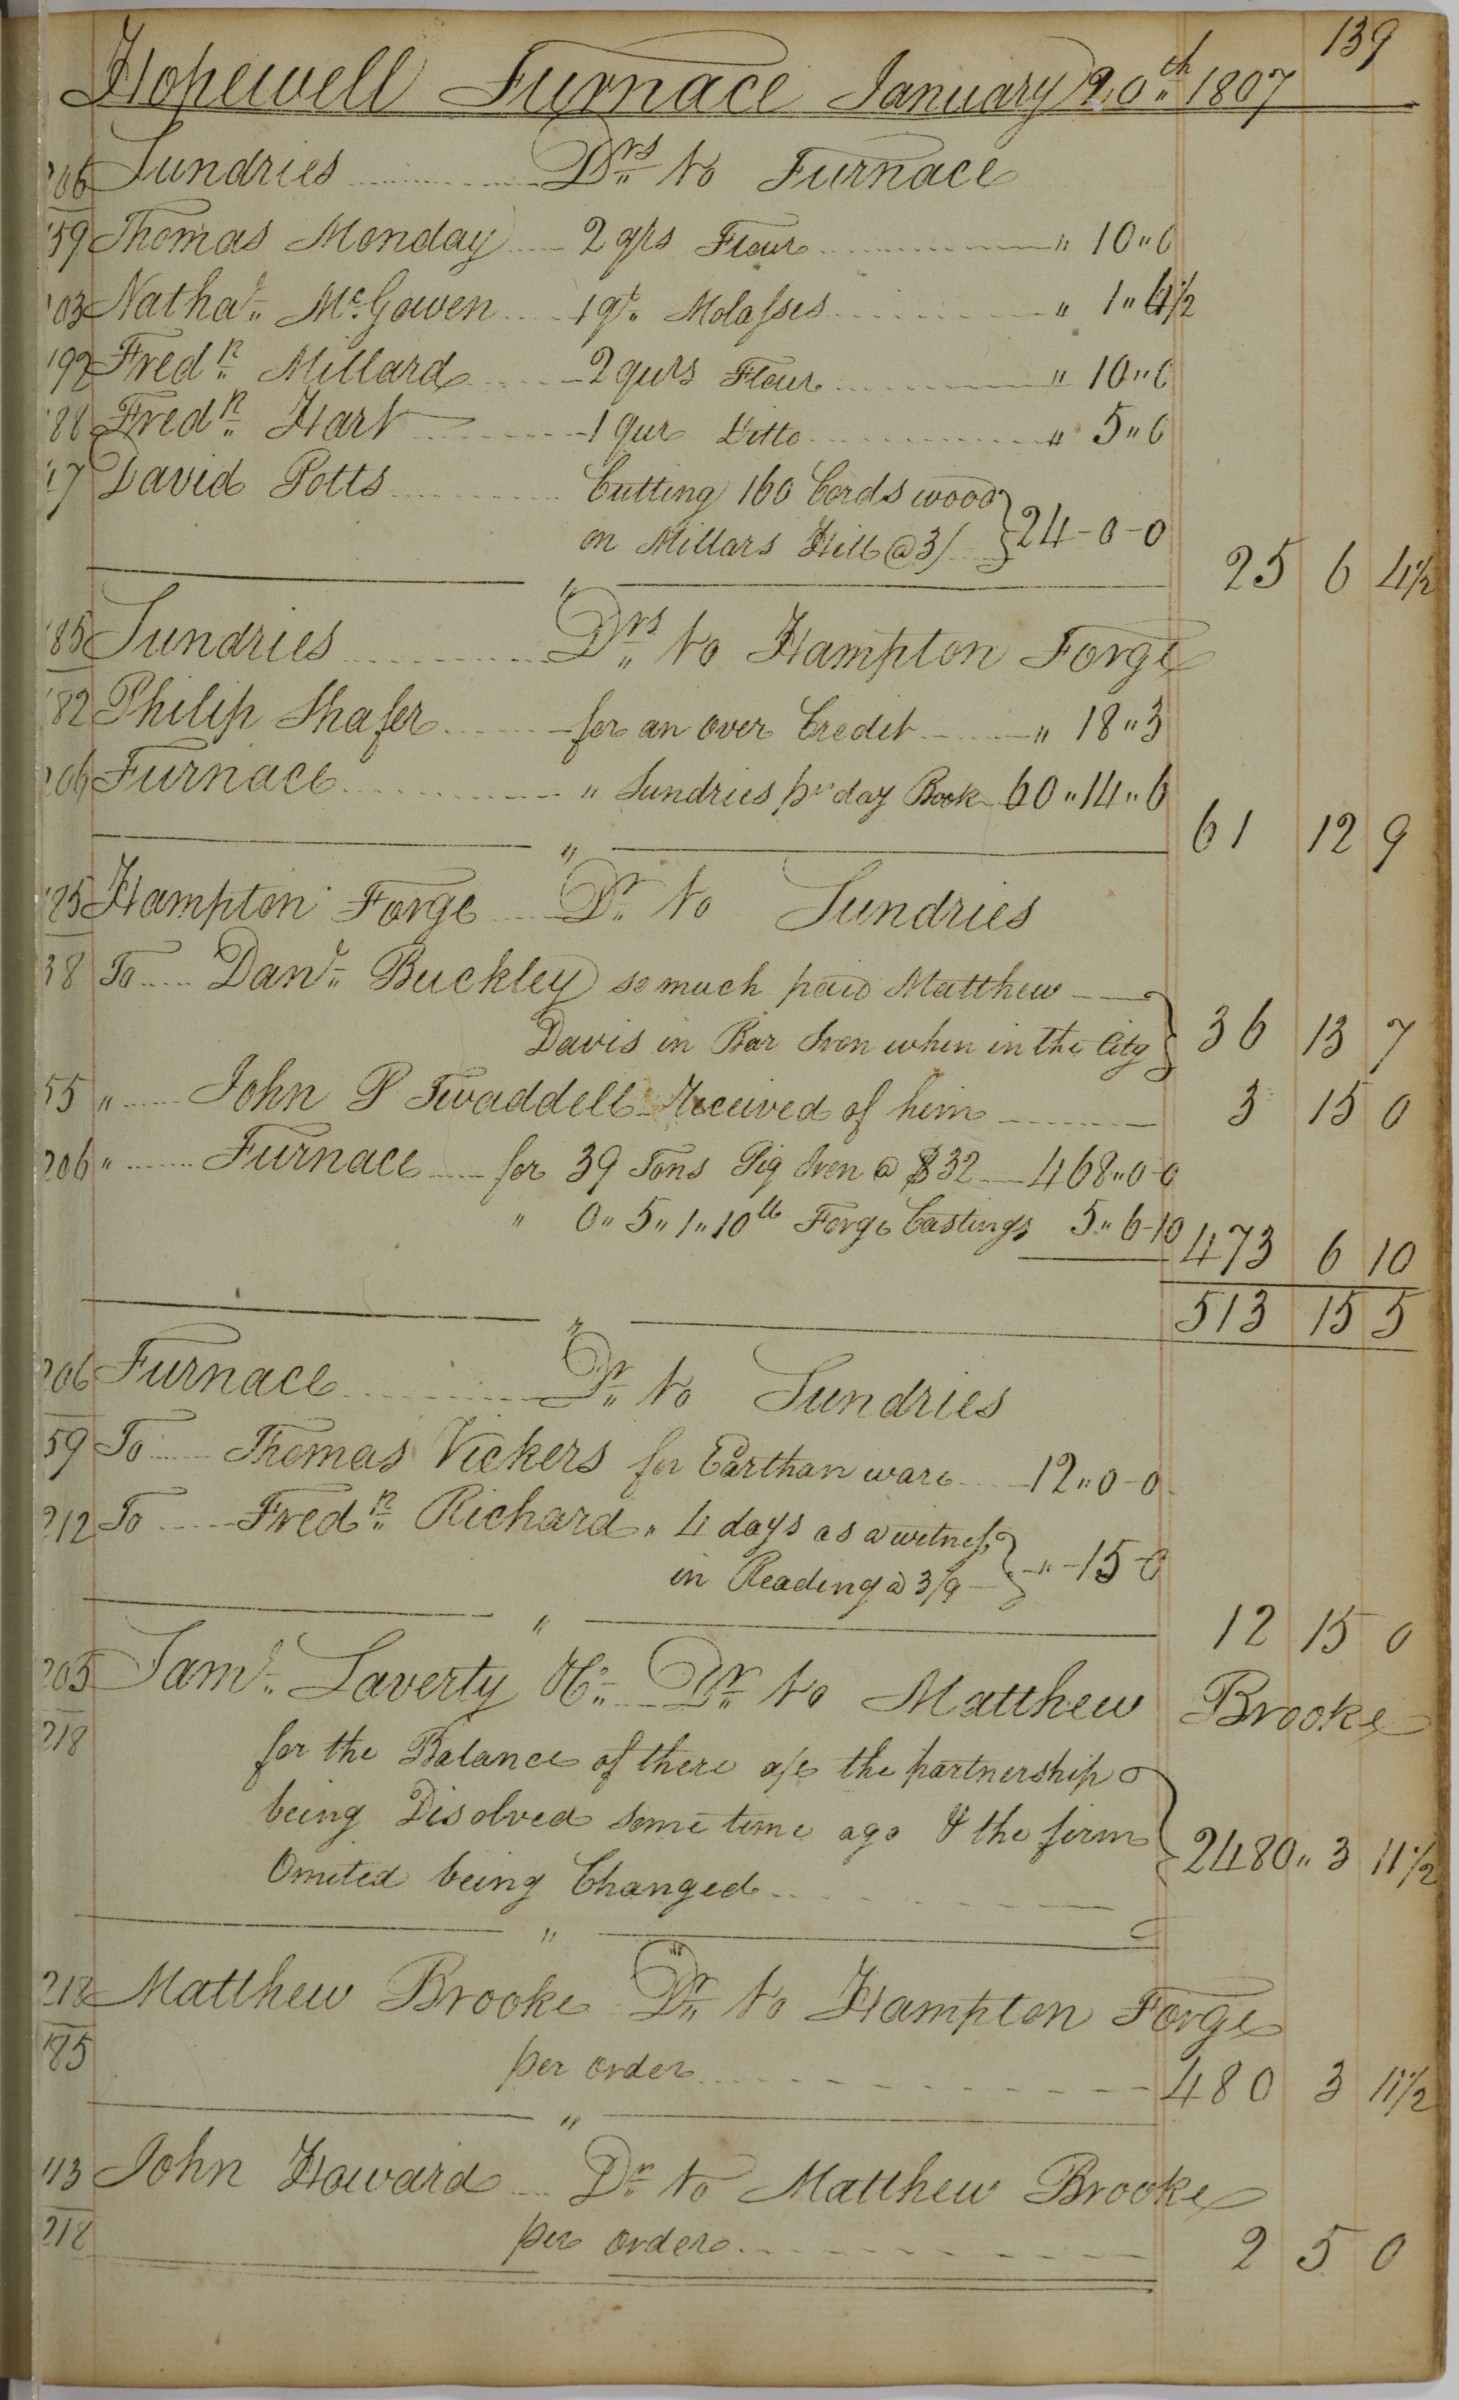 139
Hopewell Furnace January 20th 1807
206 Sundries Drs to Furnace
159 Thomas Monday 2 qrs Flour " 10"0
103 Nathal McGowen 1 qt Molasses " 1"4½
192 Fredk Millard 2 qurs Flour " 10"0
188 Fredk Hart 1 qur Ditto " 5"0
17 David Potts Cutting 160 Cords wood
on Millars Hill @ 3/ 24-0-0
25 6 4½
185 Sundries Drs to Hampton Forge
182 Philip Shafer for an over Credit " 18"3
206 Furnace " Sundries pr day Book 60"14"6
61 12 9
185 Hampton Forge Dr to Sundries
38 To Danl Buckley so much paid Matthew
Davis in Bar Iron when in the City 36 13 7
55 " John P Twaddell Received of him 3 15 0
206 " Furnace for 39 Tons Pig Iron @ $32 468"0-0
" 0"5"1"10 lb Forge Castings 5"6-10 473 6 10
513 15 5
206 Furnace Dr to Sundries
59 To Thomas Vickers for Earthan ware 12"0-0
212 To Fredk Richard " 4 days as a witness
in Reading @ 3/9 "-15-0
12 15 0
205 Saml Laverty &Co Dr to Matthew Brooke
218 for the Balance of there a/c the partnership
being Disolved some time ago & the firm
Omited being Changed 2480"3 11½
218 Matthew Brooke Dr to Hampton Forge
185 per order 480 3 11½
113 John Howard Dr to Matthew Brooke
218 per order 2 5 0